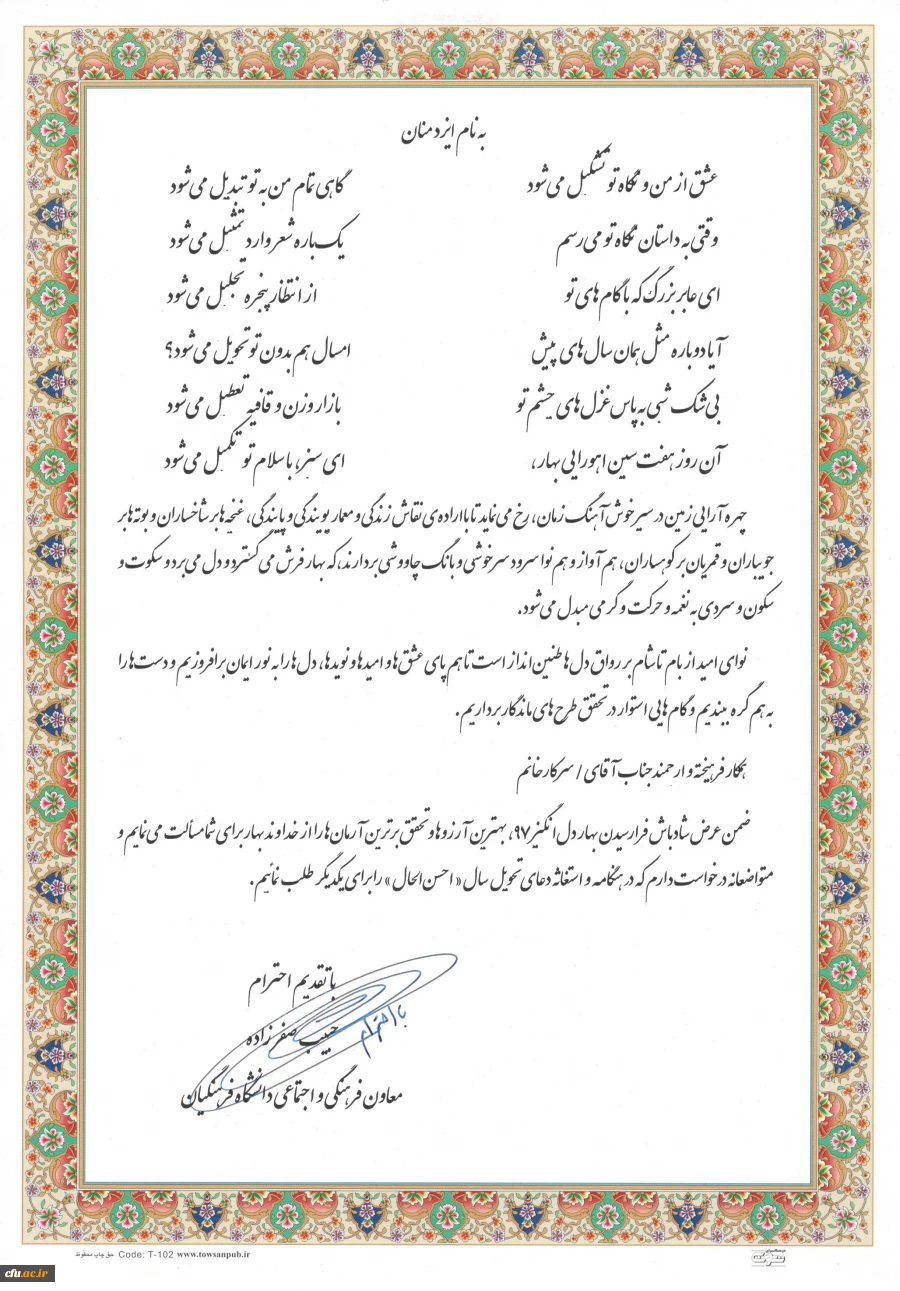 به نام ایزد منان
عشق از من و نگاه تو تشکیل می‌شود گاهی تمام من به تو تبدیل می‌شود
وقتی به داستان نگاه تو می رسم یک باره شعر وارد تمثیل می‌شود
ای عابر بزرگ که با گام های تو از انتظار پنجره تجلیل می‌شود
آیا دوباره مثل همان سال های پیش امسال هم بدون تو تحویل می‌شود؟
بی شک شبی به پاس غزل های چشم تو بازار وزن و قافیه تعطیل می‌شود
آن روز هفت سین اهورایی بهار، ای سبز، با سلام تو تکمیل می‌شود
چهره آرایی زمین در سیر خوش آهنگ زمان، رخ می نماید تا با اراده‌ی نقاش زندگی و معمار پویندگی و پایندگی، غنچه ها بر شاخساران و بوته ها بر
جویباران و قمریان بر کوهساران، هم آواز و هم نوا سرود سرخوشی و بانگ چاووشی بردارند، که بهار فرش می گسترد و دل می برد و سکوت و
سکون و سردی به نغمه و حرکت و گرمی مبدل می‌شود.
نوای امید از بام تا شام بر رواق دل ها طنین انداز است تا هم پای عشق ها و امیدها و نویدها، دل ها را به نور ایمان برافروزیم و دست ها را
به هم گره ببندیم و گام هایی استوار در تحقق طرح های ماندگار برداریم.
همکار فرهیخته و ارجمند جناب آقای / سرکار خانم
ضمن عرض شادباش فرارسیدن بهار دل انگیز ۹۷، بهترین آرزوها و تحقق برترین آرمان ها را از خداوند بهار برای شما مسألت می نمایم و
متواضعانه درخواست دارم که در هنگامه و استغاثه دعای تحویل سال «احسن الحال» را برای یکدیگر طلب نمائیم.
با تقدیم احترام
با احترام
حبیب صفرزاده
معاون فرهنگی و اجتماعی دانشگاه فرهنگیان
حق چاپ محفوظ Code: T-102 www.towsanpub.ir
cfu.ac.ir